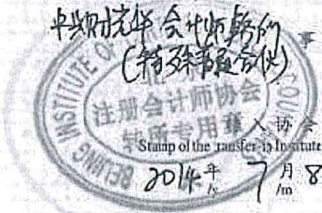 中兴财光华会计师事务所 事
(特殊普通合伙)
BEIJING INSTITUTE OF
注册会计师协会
转所专用章 入协会
Stamp of the transfer-in Institute
2014年 7月 8
/y /m